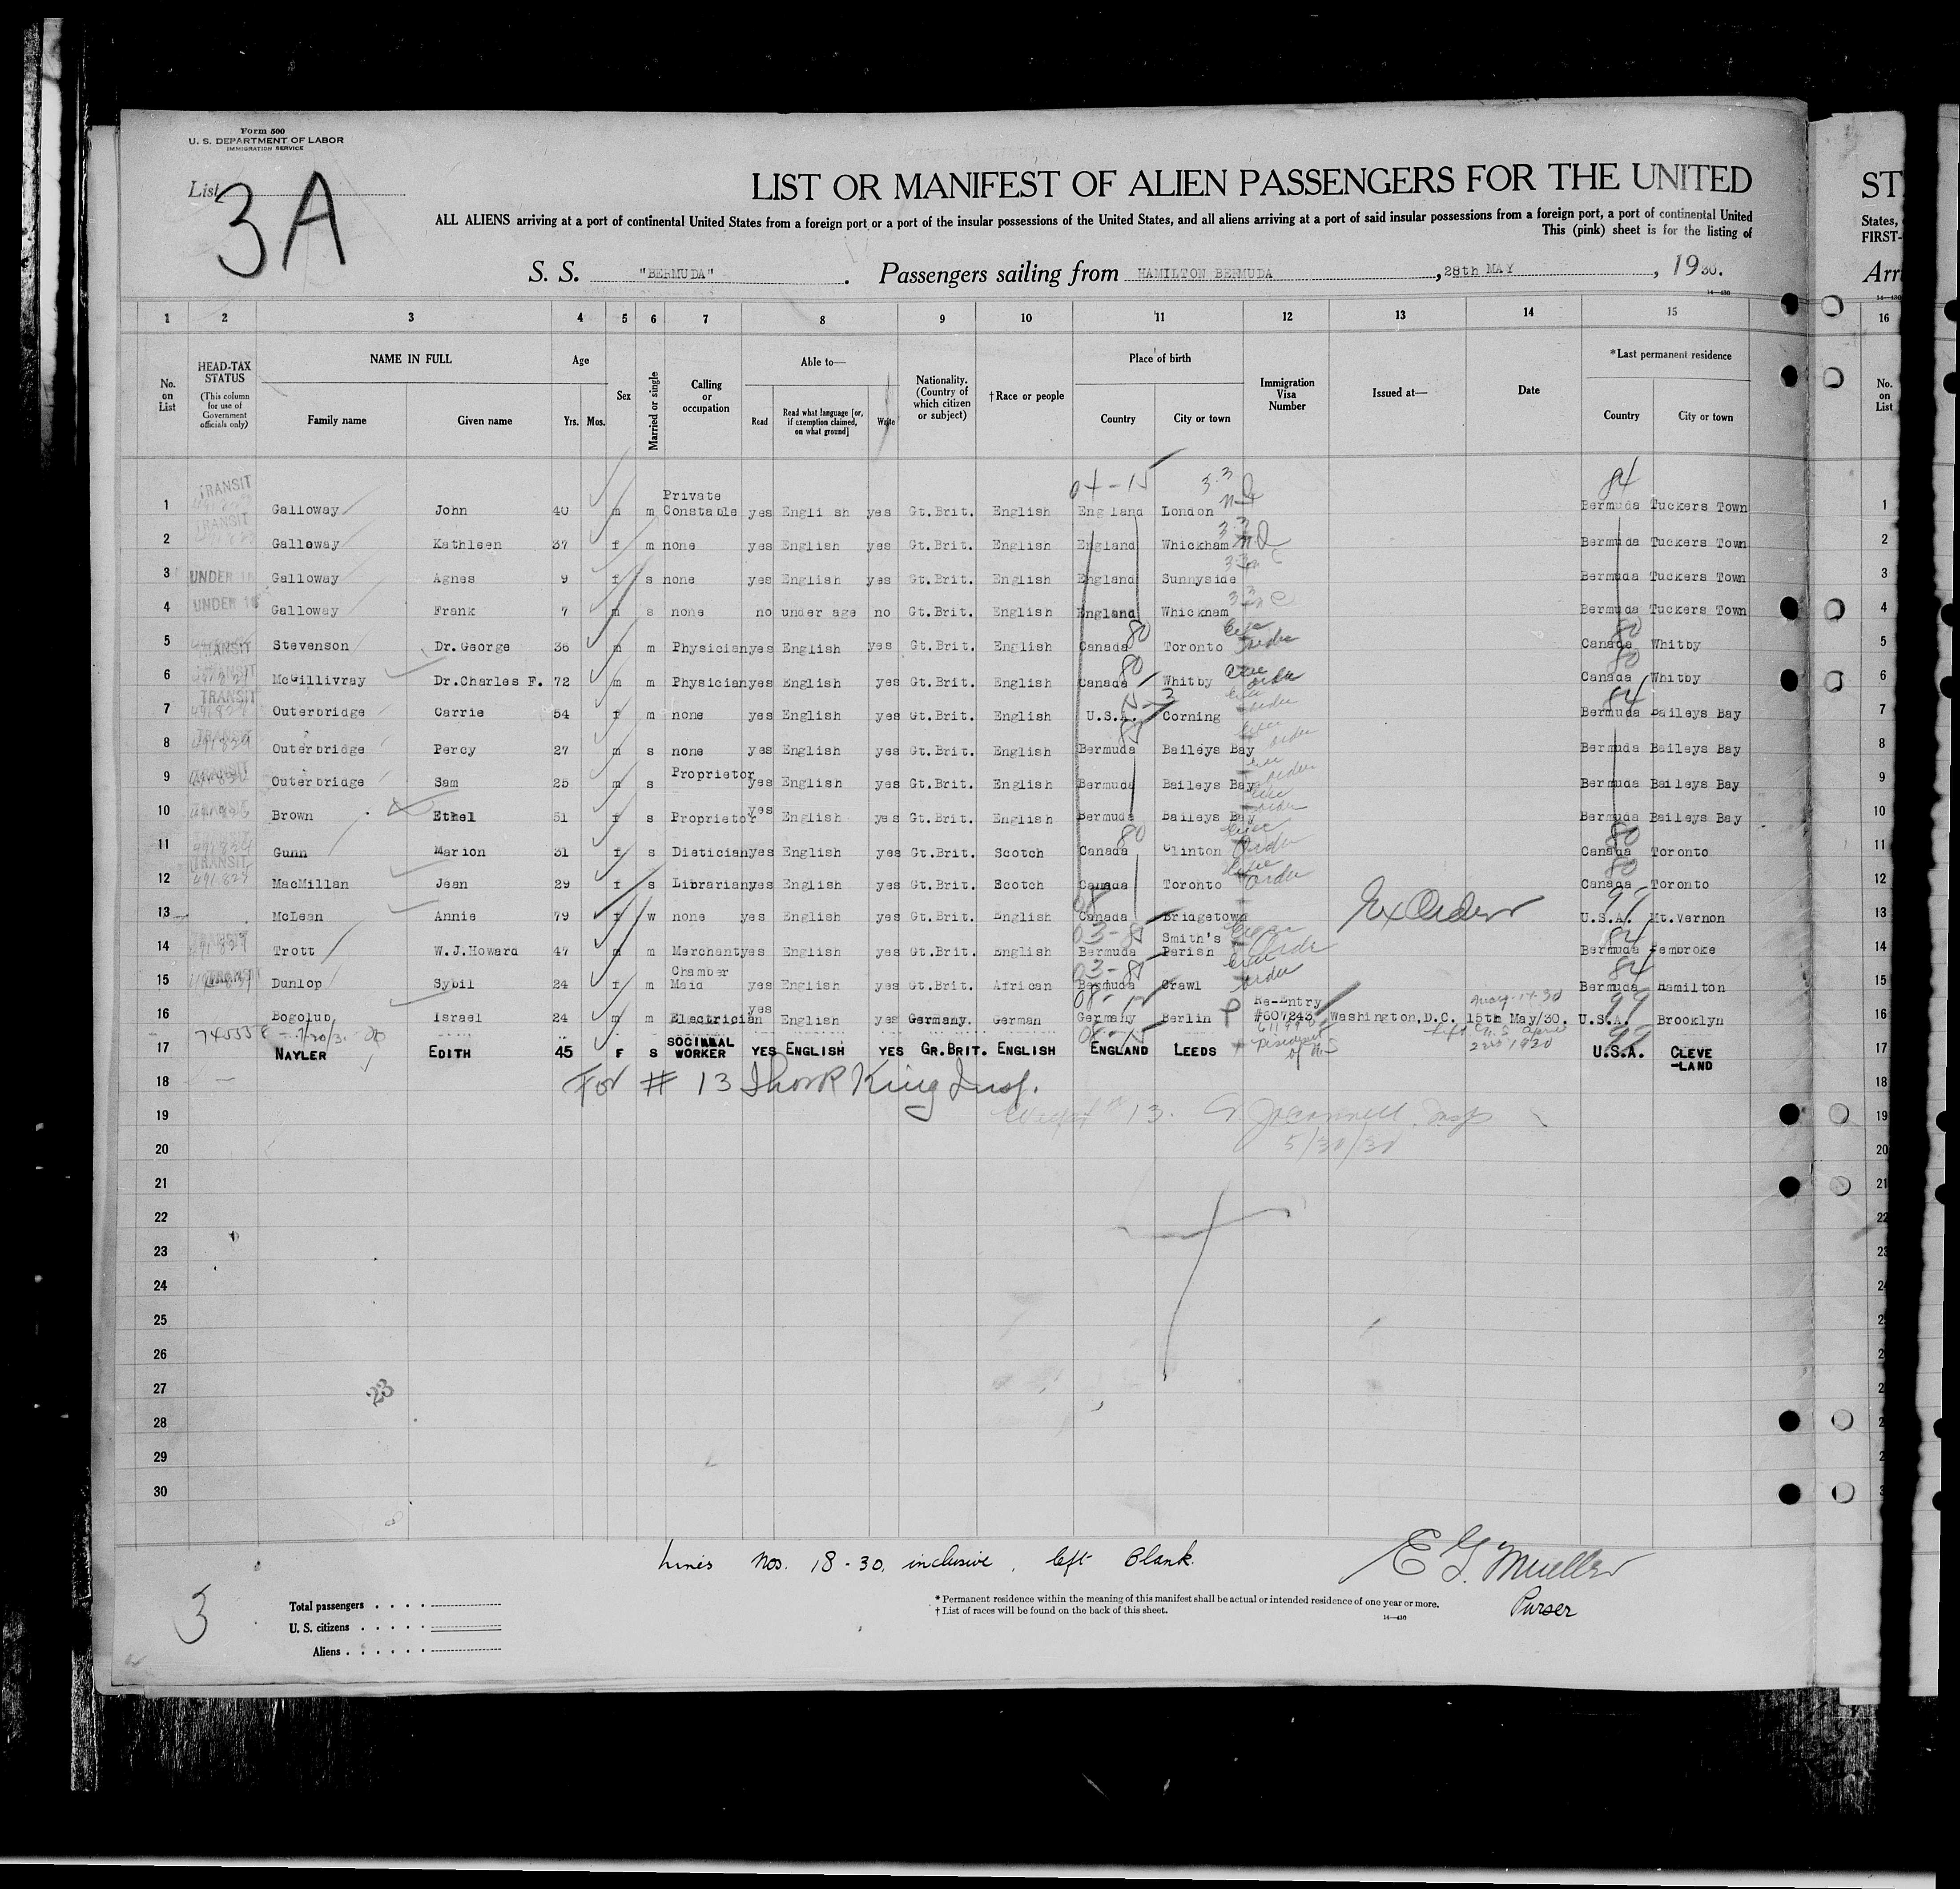 Form 500
U. S. DEPARTMENT OF LABOR
IMMIGRATION SERVICE
List 3A
LIST OR MANIFEST OF ALIEN PASSENGERS FOR THE UNITED
ST
ALL ALIENS arriving at a port of continental United States from a foreign port or a port of the insular possessions of the United States, and all aliens arriving at a port of said insular possessions from a foreign port, a port of continental United
States,
This (pink) sheet is for the listing of
FIRST-
S. S. "BERMUDA". Passengers sailing from HAMILTON BERMUDA, 28th MAY, 1930.
Arri
14—430
1 2 3 4 5 6 7 8 9 10 11 12 13 14 15 16
No. on List
HEAD-TAX STATUS (This column for use of Government officials only)
NAME IN FULL
Family name Given name
Age
Yrs. Mos.
Sex
Married or single
Calling or occupation
Able to—
Read Read what language [or, if exemption claimed, on what ground] Write
Nationality. (Country of which citizen or subject)
†Race or people
Place of birth
Country City or town
Immigration Visa Number
Issued at—
Date
*Last permanent residence
Country City or town
No. on List
1 TRANSIT Galloway John 40 m m Private Constable yes Engli sh yes Gt.Brit. English England London 84 Bermuda Tuckers Town 1
2 TRANSIT Galloway Kathleen 37 f m none yes English yes Gt.Brit. English England Whickham Bermuda Tuckers Town 2
3 UNDER 16 Galloway Agnes 9 f s none yes English yes Gt.Brit. English England Sunnyside Bermuda Tuckers Town 3
4 UNDER 16 Galloway Frank 7 m s none no under age no Gt.Brit. English England Whickham Bermuda Tuckers Town 4
5 TRANSIT Stevenson Dr.George 36 m m Physician yes English yes Gt.Brit. English Canada 80 Toronto Canada 80 Whitby 5
6 TRANSIT McGillivray Dr.Charles F. 72 m m Physician yes English yes Gt.Brit. English Canada 80 Whitby Canada 80 Whitby 6
7 TRANSIT Outerbridge Carrie 54 f m none yes English yes Gt.Brit. English U.S.A. Corning 84 Bermuda Baileys Bay 7
8 TRANSIT Outerbridge Percy 27 m s none yes English yes Gt.Brit. English Bermuda Baileys Bay Bermuda Baileys Bay 8
9 TRANSIT Outerbridge Sam 25 m s Proprietor yes English yes Gt.Brit. English Bermuda Baileys Bay Bermuda Baileys Bay 9
10 Brown Ethel 51 f s Proprietor yes English yes Gt.Brit. English Bermuda Baileys Bay Bermuda Baileys Bay 10
11 TRANSIT Gunn Marion 31 f s Dietician yes English yes Gt.Brit. Scotch Canada 80 Clinton Order Canada 80 Toronto 11
12 TRANSIT MacMillan Jean 29 f s Librarian yes English yes Gt.Brit. Scotch Canada Toronto Order Canada 80 Toronto 12
13 McLean Annie 79 f w none yes English yes Gt.Brit. English Canada Bridgetown Ex Order U.S.A. Mt.Vernon 13
14 TRANSIT Trott W.J.Howard 47 m m Merchant yes English yes Gt.Brit. English Bermuda Smith's Parish 84 Bermuda Pembroke 14
15 TRANSIT Dunlop Sybil 24 f m Chamber Maid yes English yes Gt.Brit. African Bermuda Crawl order 84 Bermuda Hamilton 15
16 Bogolub Israel 24 m m Electrician yes English yes Germany. German Germany Berlin Re-Entry #607243 Washington,D.C. 15th May/30. U.S.A. 99 Brooklyn 16
17 NAYLER EDITH 45 F S SOCIAL WORKER YES ENGLISH YES GR.BRIT. ENGLISH ENGLAND LEEDS U.S.A. 99 CLEVE -LAND 17
18 For # 13 King Insp. 18
19 13. Insp 19
5/30/30
20 20
21 21
22 22
23 23
24 24
25 25
26
27
23
28
29
30
Lines Nos. 18-30, inclusive, left Blank.
E G. Mueller
Purser
3
Total passengers . . . .
U. S. citizens . . . . .
Aliens . . . . . .
* Permanent residence within the meaning of this manifest shall be actual or intended residence of one year or more.
† List of races will be found on the back of this sheet.
14—430